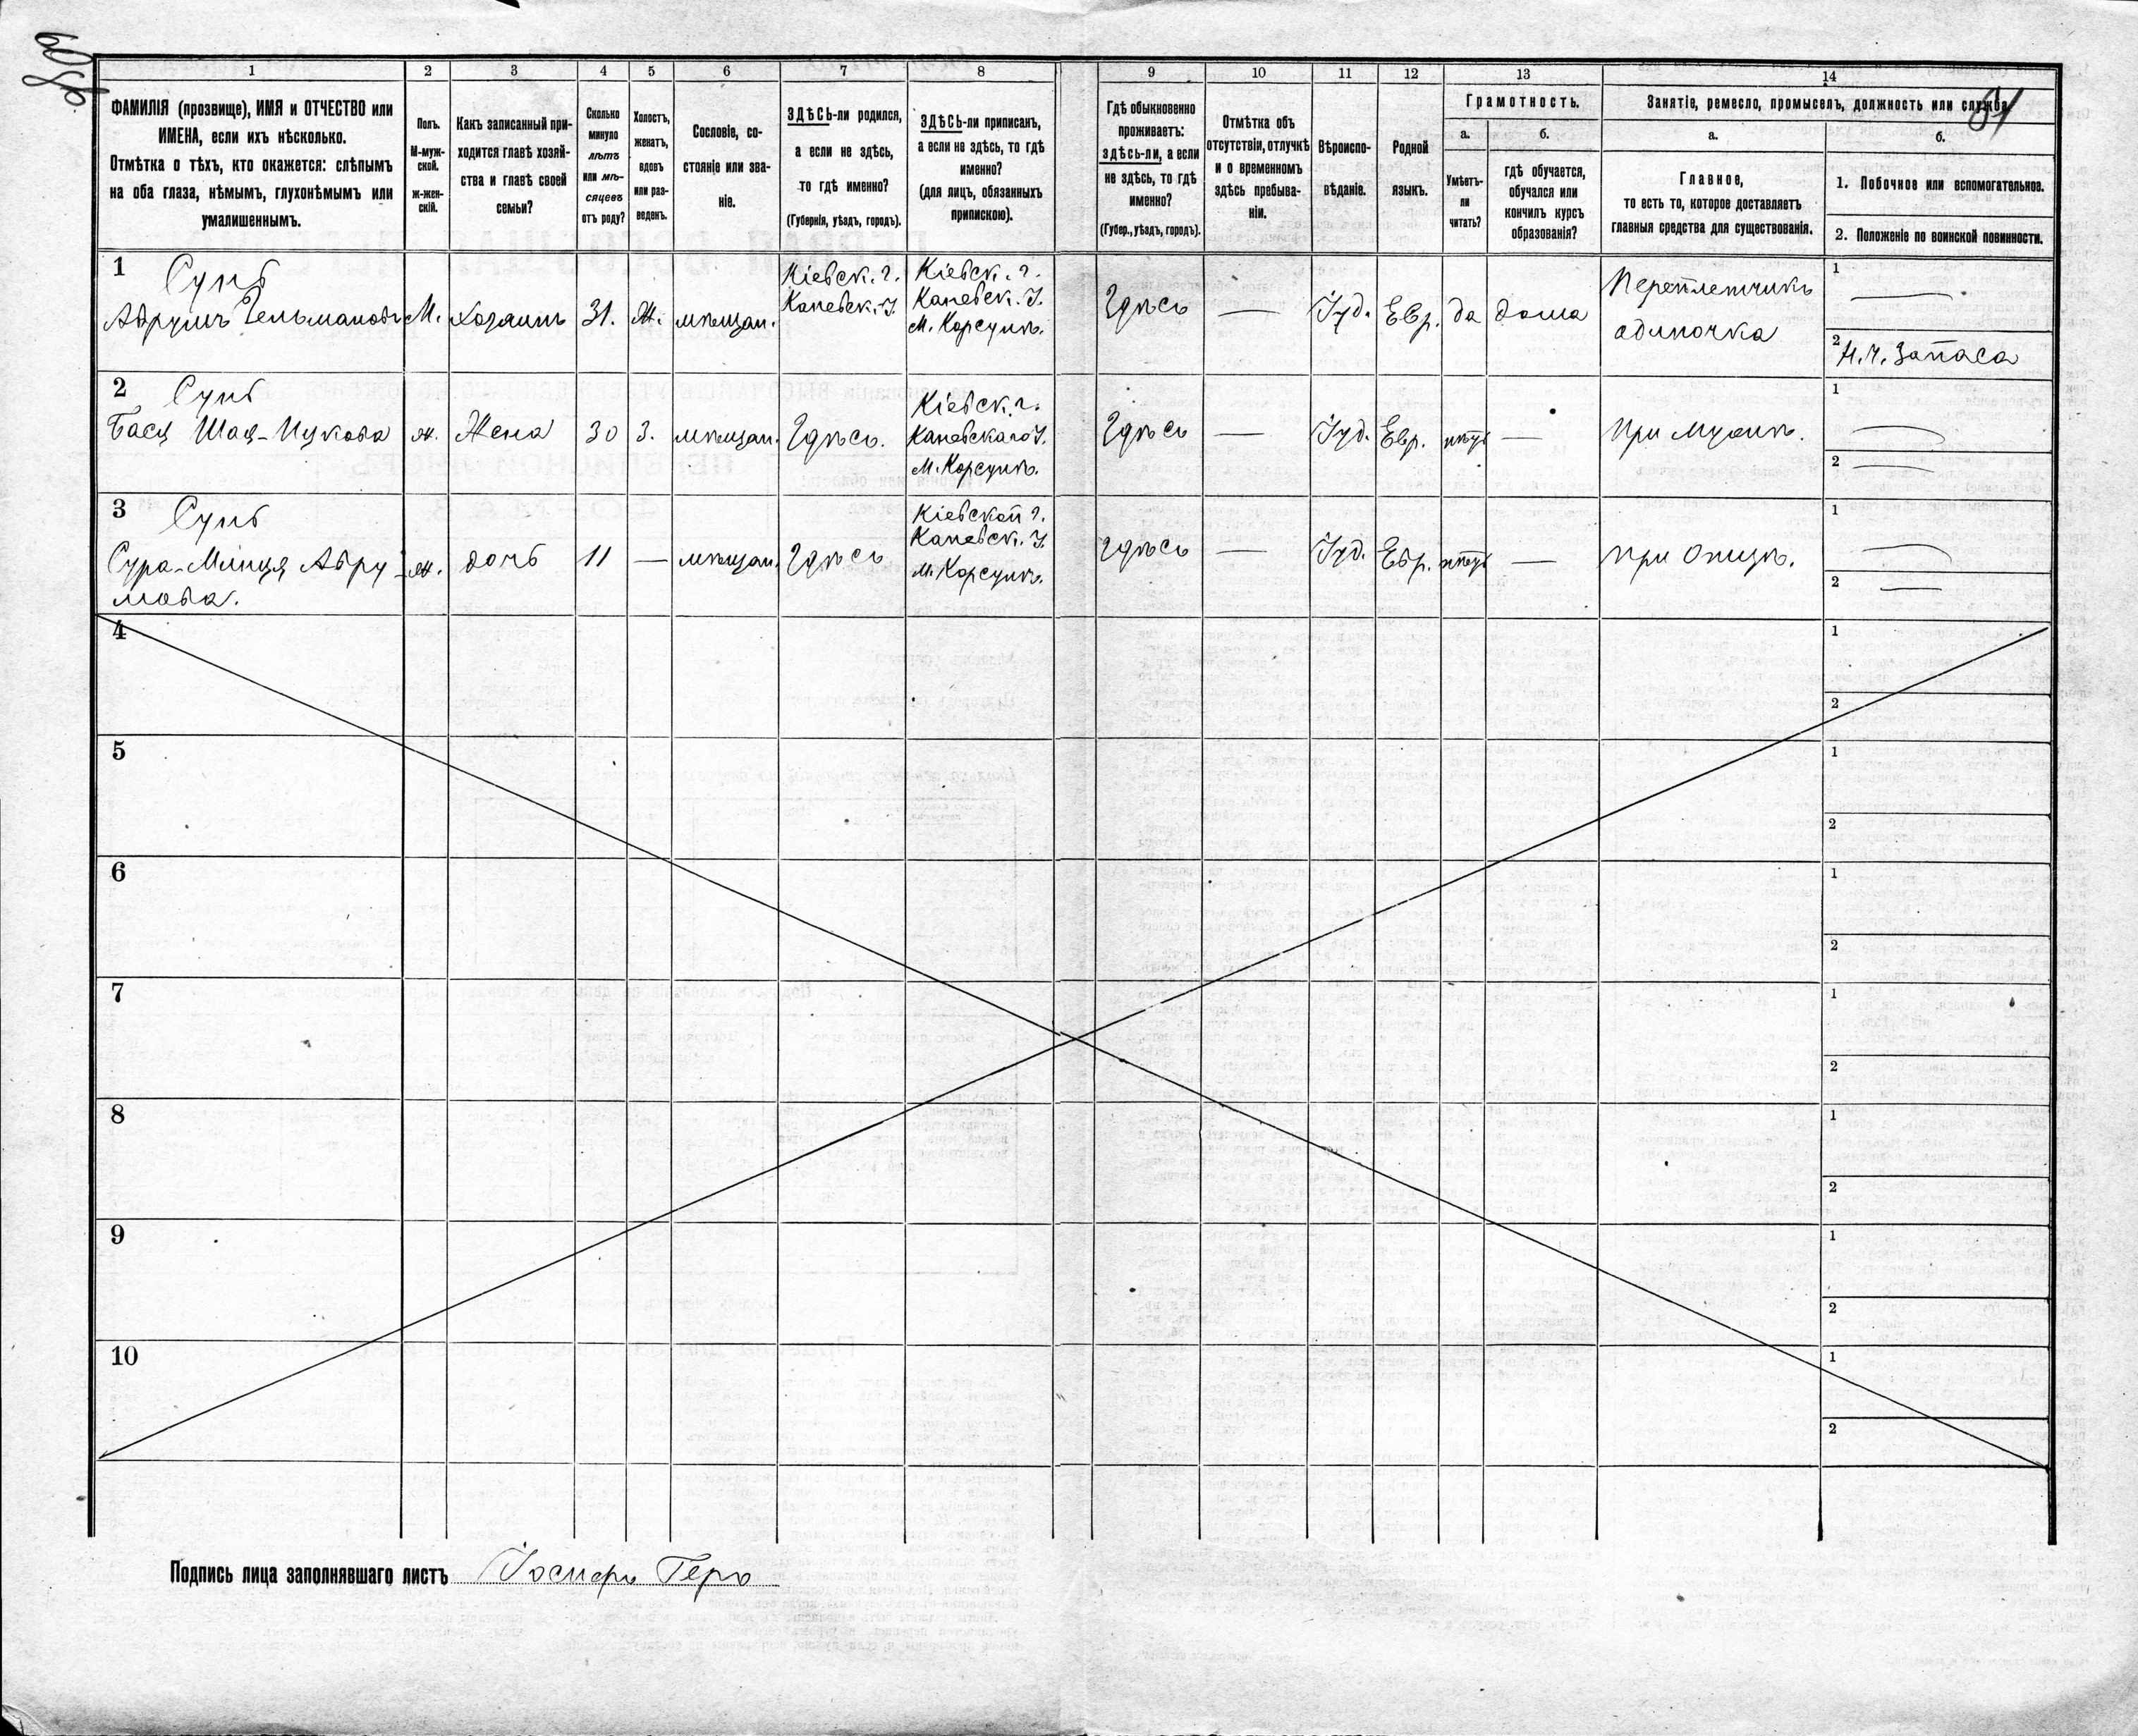 60 об.
1 2 3 4 5 6 7 8 9 10 11 12 13 14
ФАМИЛІЯ (прозвище), ИМЯ и ОТЧЕСТВО или
ИМЕНА, если ихъ нѣсколько.
Отмѣтка о тѣхъ, кто окажется: слѣпымъ
на оба глаза, нѣмымъ, глухонѣмымъ или
умалишеннымъ.
Полъ.
М-муж-
ской.
ж-жен-
скій.
Какъ записанный при-
ходится главѣ хозяй-
ства и главѣ своей
семьи?
Сколько
минуло
лѣтъ
или мѣ-
сяцевъ
отъ роду?
Холостъ,
женатъ,
вдовъ
или раз-
веденъ.
Сословіе, со-
стояніе или зва-
ніе.
ЗДѢСЬ-ли родился,
а если не здѣсь,
то гдѣ именно?
(Губернія, уѣздъ, городъ).
ЗДѢСЬ-ли приписанъ,
а если не здѣсь, то гдѣ
именно?
(для лицъ, обязанныхъ
припискою).
Гдѣ обыкновенно
проживаетъ:
здѣсь-ли, а если
не здѣсь, то гдѣ
именно?
(Губер., уѣздъ, городъ).
Отмѣтка объ
отсутствіи, отлучкѣ
и о временномъ
здѣсь пребыва-
ніи.
Вѣроиспо-
вѣданіе.
Родной
языкъ.
Грамотность.
а. б.
Умѣетъ-
ли
читать?
гдѣ обучается,
обучался или
кончилъ курсъ
образованія?
Занятіе, ремесло, промыселъ, должность или служба.
а. б.
Главное,
то есть то, которое доставляетъ
главныя средства для существованія.
1. Побочное или вспомогательное.
2. Положеніе по воинской повинности.
1
М. хозяинъ 31. Ж. мѣщан.
Кіевск. г.
Каневск. У.
Кіевск. г.
Каневск. У.
м. Корсунь.
Здѣсь — Іуд. Евр. да дома
Переплетчикъ
одиночка
1 —
2 Н. Ч. Запаса
2
Бася
ж. Жена 30 З. мѣщан. Здѣсь.
Кіевск. г.
Каневскаго У.
м. Корсунь.
Здѣсь — Іуд. Евр. нѣтъ —
при мужѣ.
1 —
2 —
3
Сура-
мова.
ж. дочь 11 — мѣщан. Здѣсь
Кіевской г.
Каневск. У.
м. Корсунь.
Здѣсь — Іуд. Евр. нѣтъ —
при Отцѣ.
1 —
2 —
4
1
2
5
1
2
6
1
2
7
1
2
8
1
2
9
1
2
10
1
2
Подпись лица заполнявшаго листъ